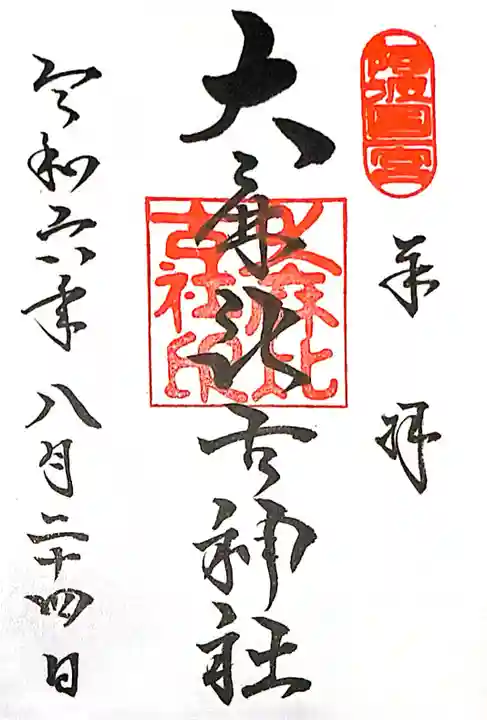 阿波国一宮
奉拝
大麻比古神社
大麻比古社印
令和六年八月二十四日